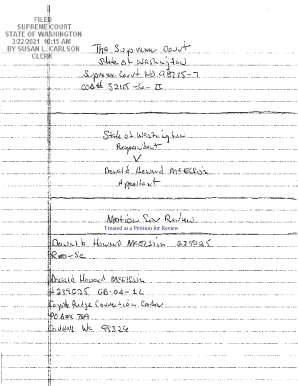 FILED
SUPREME COURT
STATE OF WASHINGTON
3/22/2021 10:15 AM
BY SUSAN L. CARLSON
CLERK
The Supreme Court
State of Washington
Supreme Court NO. 98715-7
COA# 32115-6-II
State of Washington
Respondent
V
Donald Howard McElfish
Appellant
Motion for Review
Treated as a Petition for Review
Donald Howard McElfish 239025
Donald Howard McElfish
#239025 GB-04-1L
Coyote Ridge Correction Center
PO Box 769
Connell Wa. 99326